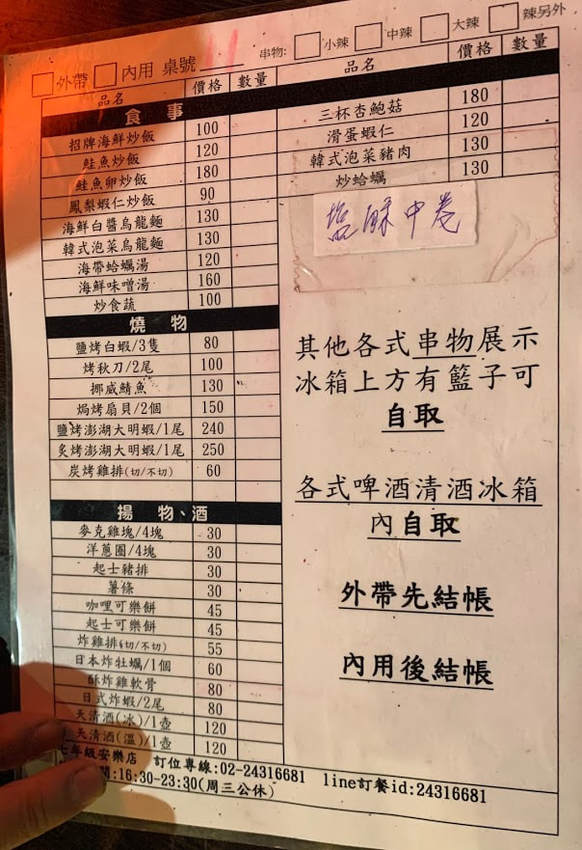 外帶 內用 桌號 串物: 小辣 中辣 大辣 辣另外
品名 價格 數量
食事
招牌海鮮炒飯 100
鮭魚炒飯 120
鮭魚卵炒飯 180
鳳梨蝦仁炒飯 90
海鮮白醬烏龍麵 130
韓式泡菜烏龍麵 130
海帶蛤蠣湯 120
海鮮味噌湯 160
炒食蔬 100
燒物
鹽烤白蝦/3隻 80
烤秋刀/2尾 100
挪威鯖魚 130
焗烤扇貝/2個 150
鹽烤澎湖大明蝦/1尾 240
炙烤澎湖大明蝦/1尾 250
炭烤雞排(切/不切) 60
揚物、酒
麥克雞塊/4塊 30
洋蔥圈/4塊 30
起士豬排 30
薯條 30
咖哩可樂餅 45
起士可樂餅 45
炸雞排(切/不切) 55
日本炸牡蠣/1個 60
酥炸雞軟骨 80
日式炸蝦/2尾 80
天清酒(冰)/1壺 120
天清酒(溫)/1壺 120
品名 價格 數量
三杯杏鮑菇 180
滑蛋蝦仁 120
韓式泡菜豬肉 130
炒蛤蠣 130
鹽酥中卷
其他各式串物展示
冰箱上方有籃子可
自取
各式啤酒清酒冰箱
內自取
外帶先結帳
內用後結帳
七年級安樂店 訂位專線:02-24316681 line訂餐id:24316681
間:16:30-23:30(周三公休)